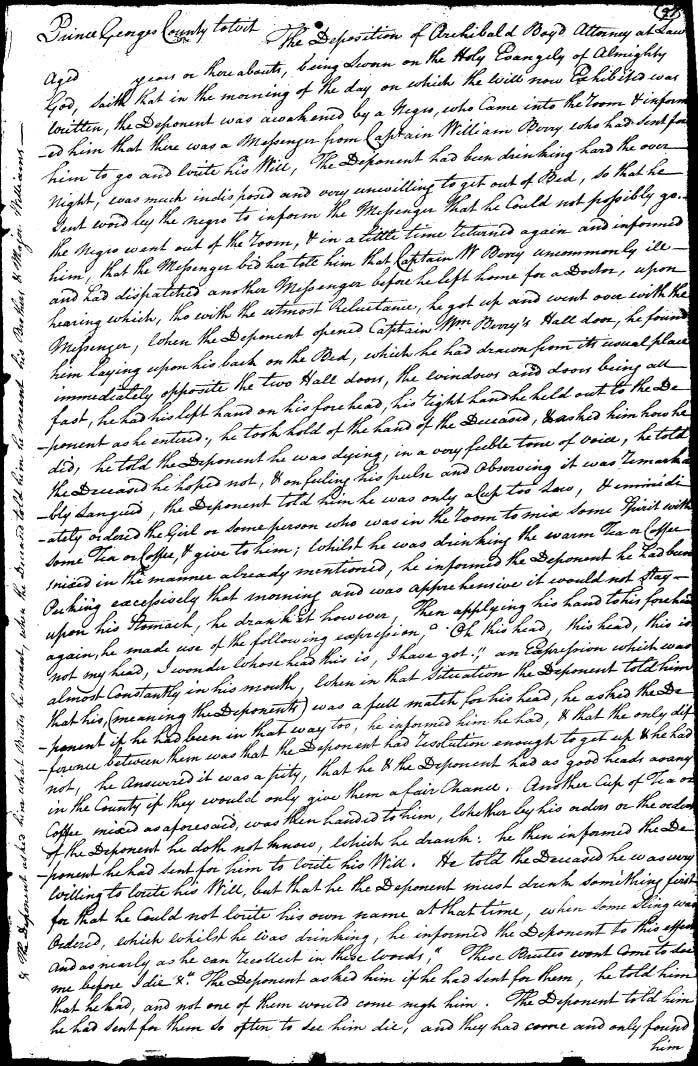 Prince Georges County to wit The Deposition of Archibald Boyd Attorney at Law
Aged years or thereabouts, being Sworn on the Holy Evangely of Almighty
God, saith that in the morning of the day on which the Will now Exhibited was
written, the Deponent was awakened by a Negro, who Came into the Room & inform
-ed him that there was a Messenger from Captain William Berry who had sent for
him to go and write his Will, The Deponent had been drinking hard the over
night, was much indisposed and very unwilling to get out of Bed, so that he
Sent word by the negro to inform the Messenger that he Could not possibly go..
the Negro went out of the Room, & in a little time returned again and informed
him, that the Messenger bid her tell him that Captain W Berry uncommonly ill
and had dispatched another Messenger before he left home for a Doctor, upon
hearing which, tho with the utmost Reluctance, he got up and went over with the
Messenger, When the Deponent opened Captain Wm Berry's Hall door, he found
him laying upon his back on the Bed, which he had drawn from its usual place
immediately opposite the two Hall doors, the windows and doors being all
fast, he had his left hand on his forehead, his right hand he held out to the De
-ponent as he entered, he took hold of the hand of the Deceased, & asked him how he
did, he told the Deponent he was dying, in a very feeble tone of voice, he told
the Deceased he hoped not, & on feeling his pulse and Observing it was remarka
-bly Languid, the Deponent told him he was only a Cup too Low, & immidi
-ately ordered the Girl or some person who was in the Room to mix some Spirit with
some Tea or Coffee, & give to him; Whilst he was drinking the warm Tea or Coffee
mixed in the manner already mentioned, he informed the Deponent he had been
Puking excessively that morning and was apprehensive it would not stay
upon his Stomach, he drank it however, Then applying his hand to his forehead
again, he made use of the following expression, "Oh this head, this head, this is
not my head, I wonder whose head this is, I have got." an Expression which was
almost Constantly in his mouth, When in that Situation the Deponent told him
that his, (meaning the Deponents) was a full match for his head, he asked the De
-ponent if he had been in that way too, he informed him he had, & that the only dif
-ference between them was that the Deponent had resolution enough to get up & he had
not, he Answered it was a pity, that he & the Deponent had as good heads as any
in the County if they would only give them a fair Chance. Another Cup of Tea or
Coffee mixed as aforesaid, was then handed to him, Whether by his orders or the orders
of the Deponent he doth not know, Which he drank: he then informed the De
-ponent he had sent for him to write his Will. He told the Deceased he was very
willing to write his Will, but that he the Deponent must drink something first
for that he Could not write his own name at that time, when some Sling was
Ordered, which whilst he was drinking, he informed the Deponent to this effect
and as nearly as he can recollect in these words, "These Brutes wont Come to see
me before I die &". The Deponent asked him if he had Sent for them, he told him
that he had, and not one of them would come nigh him. The Deponent told him
he had sent for them so often to see him die, and they had come and only found
him
& The Deponent asked him what Brutes he meant, when the Deceased told him he meant his Brother & Major Williams